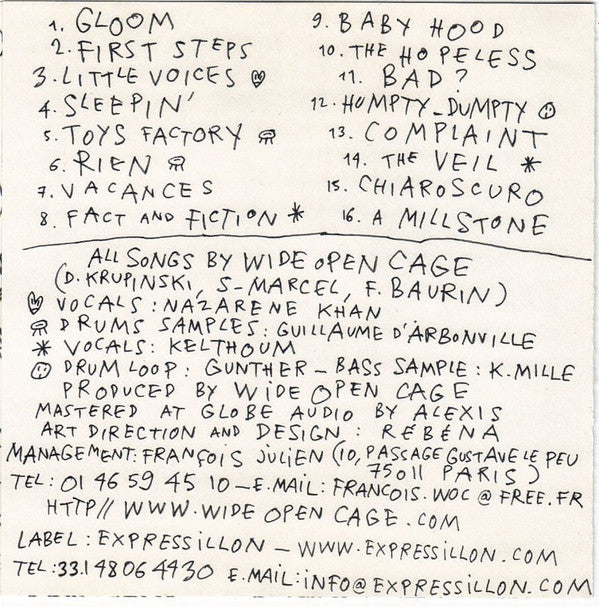 1. GLOOM
2. FIRST STEPS
3. LITTLE VOICES
4. SLEEPIN'
5. TOYS FACTORY
6. RIEN
7. VACANCES
8. FACT AND FICTION *
9. BABY HOOD
10. THE HOPELESS
11. BAD?
12. HUMPTY_DUMPTY ☺
13. COMPLAINT
14. THE VEIL *
15. CHIAROSCURO
16. A MILLSTONE
ALL SONGS BY WIDE OPEN CAGE
(D. KRUPINSKI, S-MARCEL, F. BAURIN)
VOCALS: NAZARENE KHAN
DRUMS SAMPLES: GUILLAUME D'ARBONVILLE
* VOCALS: KELTHOUM
☺ DRUM LOOP: GUNTHER - BASS SAMPLE: K.MILLE
PRODUCED BY WIDE OPEN CAGE
MASTERED AT GLOBE AUDIO BY ALEXIS
ART DIRECTION AND DESIGN : RÉBÉNA
MANAGEMENT: FRANÇOIS JULIEN (10, PASSAGE GUSTAVE LE PEU
75011 PARIS)
TEL: 01 46 59 45 10 - E.MAIL: FRANCOIS.WOC@FREE.FR
HTTP// WWW.WIDE OPEN CAGE.COM
LABEL: EXPRESSILLON - WWW.EXPRESSILLON.COM
TEL:33.1 48 06 44 30 E.MAIL: INFO@EXPRESSILLON.COM